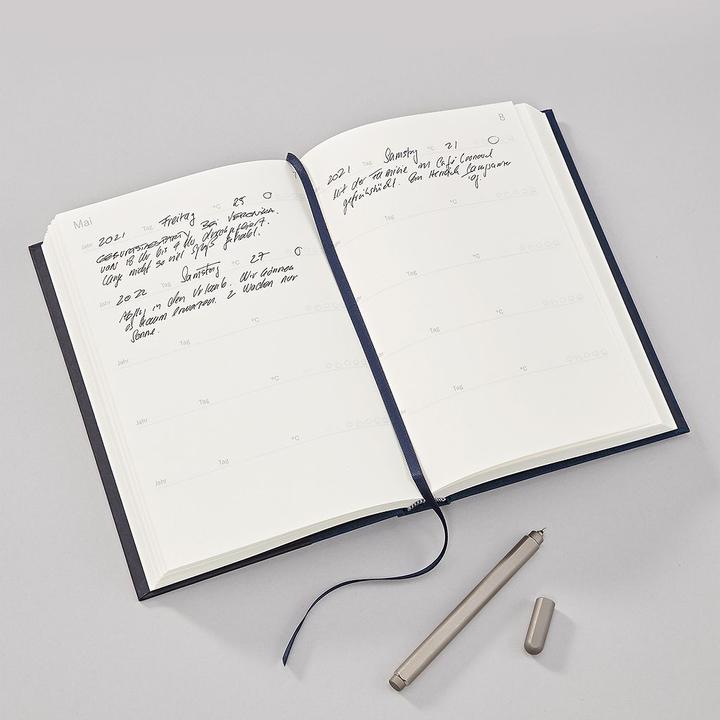 Mai
Jahr 2021 Tag Freitag °C 25
GEBURTSTAGSPARTY BEI VERONIKA.
VON 18 Uhr bis 4 Uhr durchgefeiert.
Lange nicht so viel Spaß gehabt.
Jahr 2022 Tag Samstag °C 27
Abflug in den Urlaub. Wir können
es kaum erwarten. 2 Wochen nur
Sonne.
Jahr Tag °C
Jahr Tag °C
Jahr Tag °C
8
2021 Tag Samstag °C 21
Mit der Familie im Café
gefrühstückt. Ein Herrlich
Tag
Tag °C
Tag °C
Tag °C